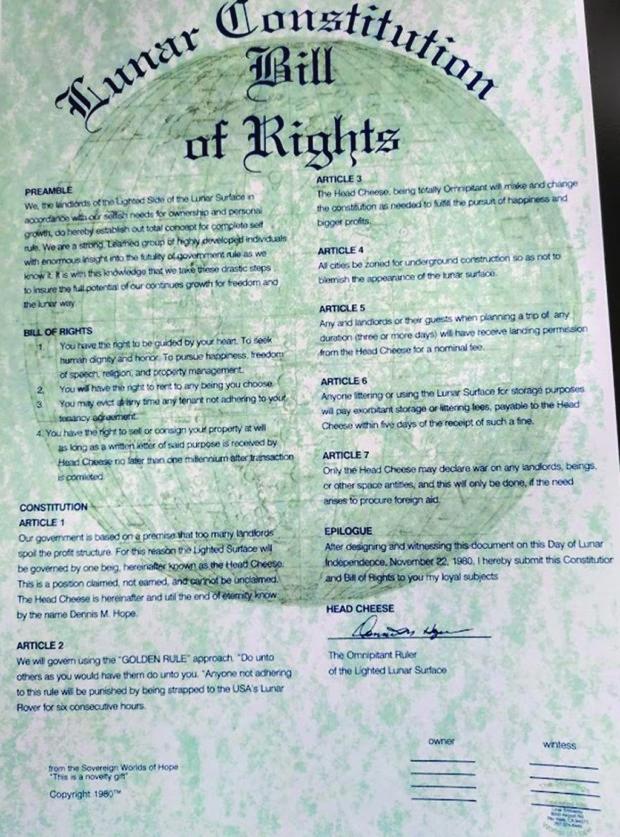 Lunar Constitution
Bill
of Rights
PREAMBLE
We, the landlords of the Lighted Side of the Lunar Surface in
accordance with our selfish needs for ownership and personal
growth, do hereby establish out total concept for complete self
rule. We are a strong, Learned group of highly developed individuals
with enormous insight into the futility of government rule as we
know it. It is with this knowledge that we take these drastic steps
to insure the full potential of our continues growth for freedom and
the lunar way
BILL OF RIGHTS
1. You have the right to be guided by your heart. To seek
human dignity and honor. To pursue happiness, freedom
of speech, religion, and property management.
2. You will have the right to rent to any being you choose.
3. You may evict at any time any tenant not adhering to your
tenancy agreement.
4. You have the right to sell or consign your property at will
as long as a written letter of said purpose is received by
Head Cheese no later than one millennium after transaction
is comleted.
CONSTITUTION
ARTICLE 1
Our government is based on a premise that too many landlords
spoil the profit structure. For this reason the Lighted Surface will
be governed by one beig, hereinafter known as the Head Cheese.
This is a position claimed, not earned, and cannot be unclaimed.
The Head Cheese is hereinafter and util the end of eternity know
by the name Dennis M. Hope.
ARTICLE 2
We will govern using the "GOLDEN RULE" approach. "Do unto
others as you would have them do unto you. "Anyone not adhering
to this rule will be punished by being strapped to the USA's Lunar
Rover for six consecutive hours.
from the Sovereign Worlds of Hope
"This is a novelty gift"
Copyright 1980™
ARTICLE 3
The Head Cheese, being totally Omnipitant will make and change
the constitution as needed to fulfill the pursuit of happiness and
bigger profits.
ARTICLE 4
All cities be zoned for underground construction so as not to
blemish the appearance of the lunar surface.
ARTICLE 5
Any and landlords or their guests when planning a trip of any
duration (three or more days) will have receive landing permission
from the Head Cheese for a nominal fee.
ARTICLE 6
Anyone littering or using the Lunar Surface for storage purposes
will pay exorbitant storage or littering fees, payable to the Head
Cheese within five days of the receipt of such a fine.
ARTICLE 7
Only the Head Cheese may declare war on any landlords, beings,
or other space antities, and this will only be done, if the need
arises to procure foreign aid.
EPILOGUE
After designing and witnessing this document on this Day of Lunar
Independence, November 22, 1980, I hereby submit this Constitution
and Bill of Rights to you my loyal subjects
HEAD CHEESE
The Omnipitant Ruler
of the Lighted Lunar Surface
owner
wintess